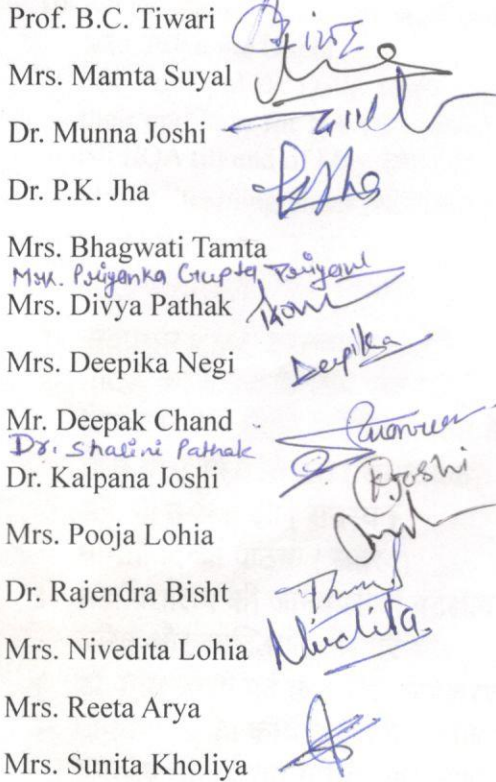 Prof. B.C. Tiwari
Mrs. Mamta Suyal
Dr. Munna Joshi
Dr. P.K. Jha
Mrs. Bhagwati Tamta
Mrs. Priyanka Gupta Priyanka
Mrs. Divya Pathak
Mrs. Deepika Negi Deepika
Mr. Deepak Chand
Dr. Shalini Pathak
Dr. Kalpana Joshi KJoshi
Mrs. Pooja Lohia
Dr. Rajendra Bisht
Mrs. Nivedita Lohia Nivedita
Mrs. Reeta Arya
Mrs. Sunita Kholiya